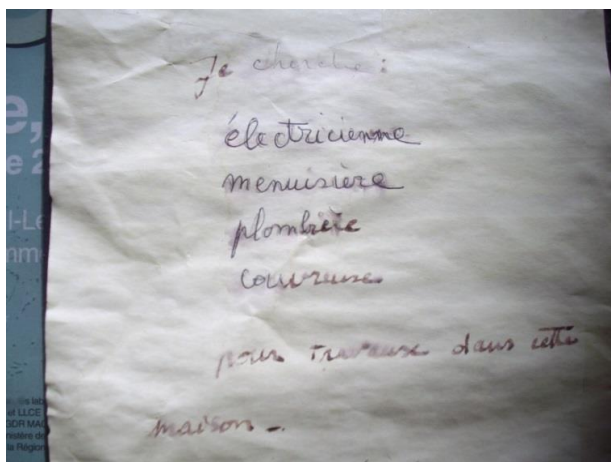 Je cherche :
électricienne
menuisière
plombière
couvreuse
pour travaux dans cette
maison -
e,
e 2
et LLCE